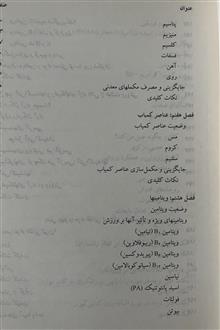 عنوان
پتاسیم
منیزیم
کلسیم
فسفات
آهن
روی
جایگزینی و مصرف مکملهای معدنی
نکات کلیدی
فصل هفتم: عناصر کمیاب
وضعیت عناصر کمیاب
مس
کروم
سلنیم
جایگزینی و مکمل‌سازی عناصر کمیاب
نکات کلیدی
فصل هشتم: ویتامینها
وضعیت ویتامین
ویتامینهای ویژه و تأثیر آنها بر ورزش
ویتامین B₁ (تیامین)
ویتامین B₂ (ریبوفلاوین)
ویتامین B₆ (پیریدوکسین)
ویتامین B₁₂ (سیانوکوبالامین)
نیاسین
اسید پانتوتنیک (PA)
فولات
بیوتن